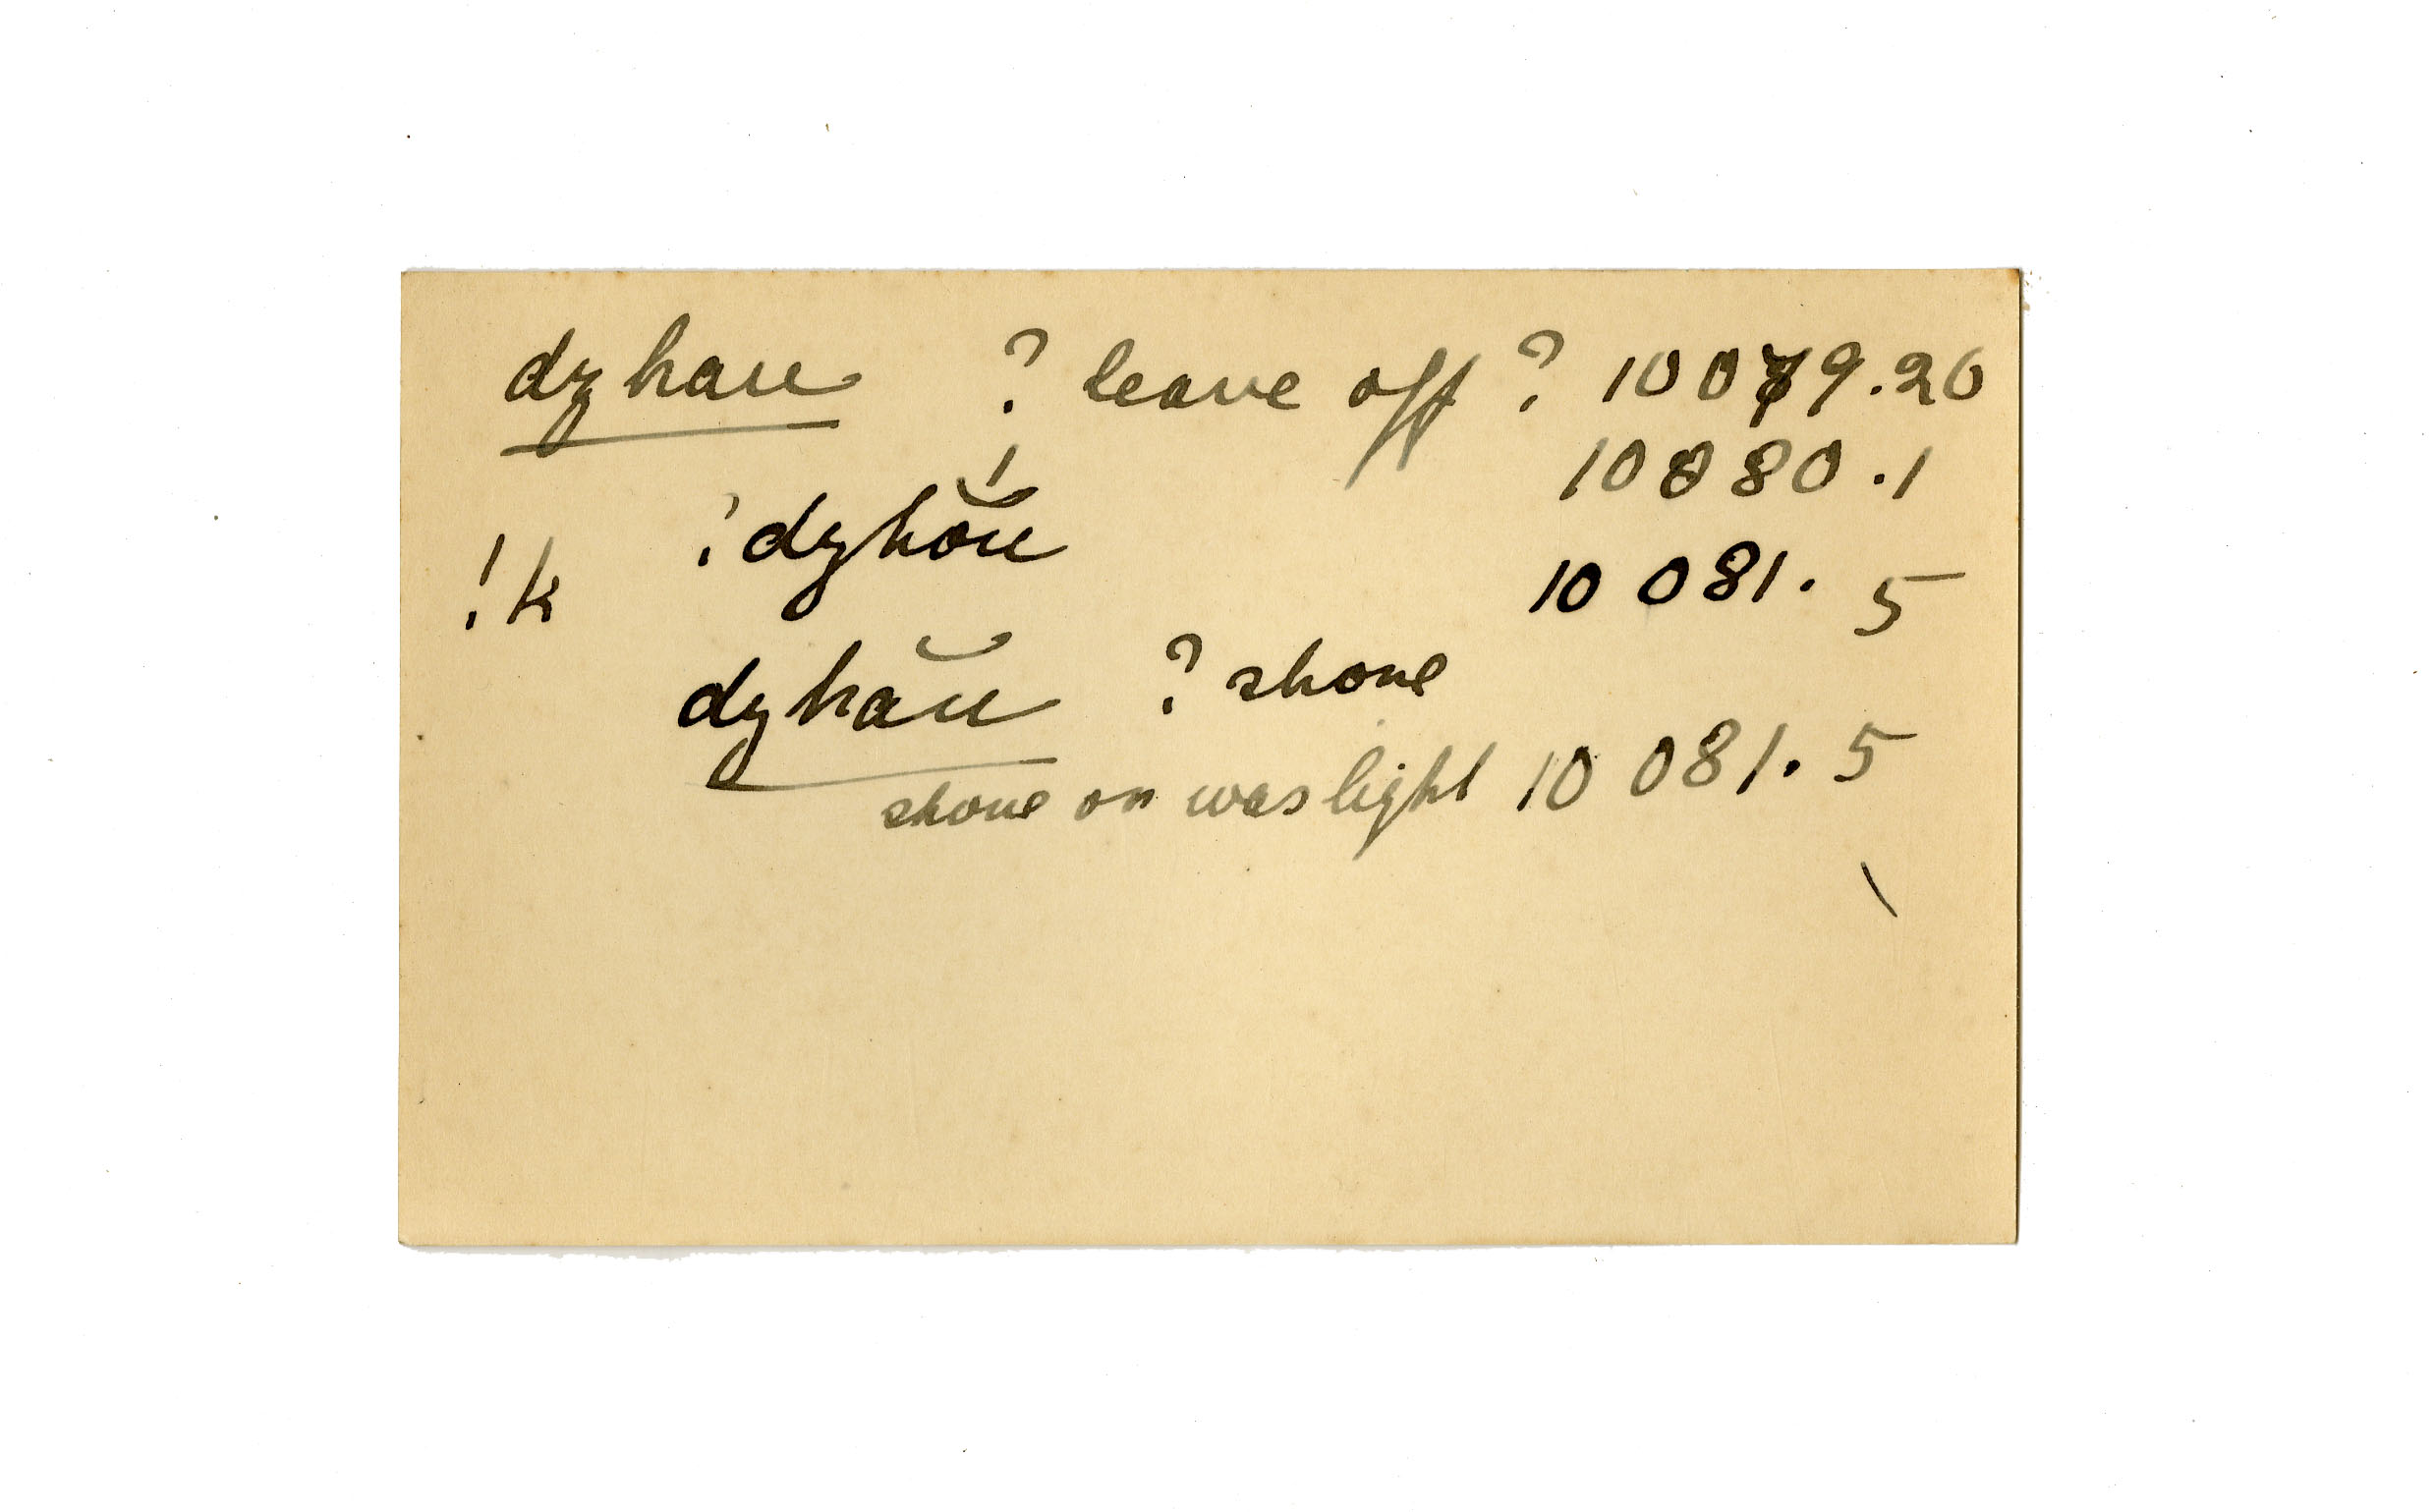 dzhau ? leave off ? 10079.20
10080.1
!k ? dzhŏú 10 081. 5
dzhaŭ ? shone
shone or was light 10 081. 5
\